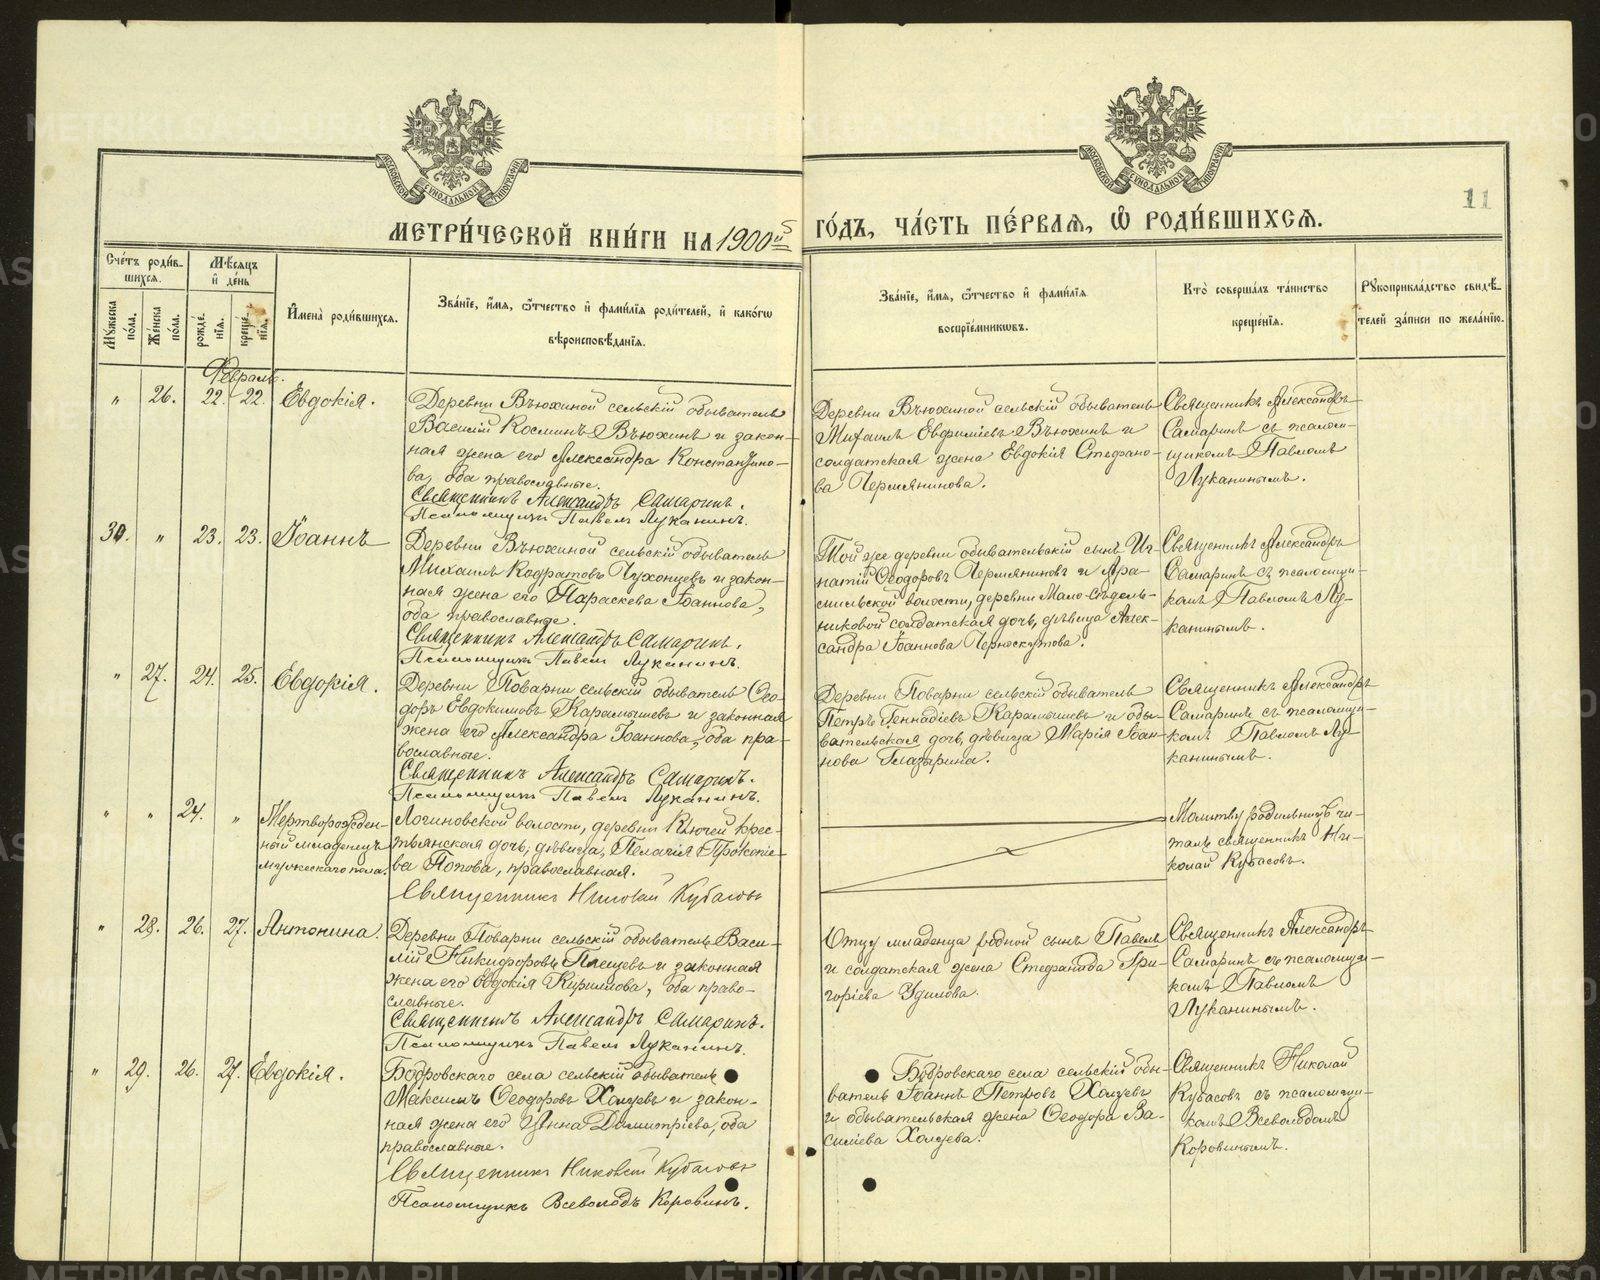 МЕТРИ́ЧЕСКОЙ КНИ́ГИ НА 1900й ГО́ДЪ, ЧА́СТЬ ПЕ́РВАЯ, Ѡ РОДИ́ВШИХСЯ.
11
Сче́тъ роди́в-
шихся.
Мѣ́сяцъ
и де́нь
Му́жеска
по́ла.
Же́нска
по́ла.
рожде́-
нїя.
креще́-
нїя.
Имена̀ роди́вшихся.
Зва́нїе, и́мя, ѻ́тчество и фами́лїя роди́телей, и како́гѡ
вѣроисповѣ́данїя.
Зва́нїе, и́мя, ѻ́тчество и фами́лїя
воспрїе́мникѡвъ.
Кто̀ соверша́лъ та́инство
креще́нїя.
Рꙋкоприкла́дство свидѣ́-
телей за́писи по жела́нїю.
Февраль.
" 26. 22. 22. Евдокія.
Деревни Вьюхиной сельскій обыватель
Василій Косминъ Вьюхинъ и закон-
ная жена его Александра Константино-
ва, оба православные.
Священникъ Александръ Самаринъ.
Псаломщикъ Павелъ Луканинъ.
Деревни Вьюхиной сельскій обыватель
Михаилъ Евфиміевъ Вьюхинъ и
солдатская жена Евдокія Стефано-
ва Чермянинова.
Священникъ Александръ
Самаринъ съ псалом-
щикомъ Павломъ
Луканинымъ.
30. " 23. 23. Іоаннъ
Деревни Вьюхиной сельскій обыватель
Михаилъ Кодратовъ Чухонцевъ и закон-
ная жена его Параскева Іоаннова,
оба православные.
Священникъ Александръ Самаринъ.
Псаломщикъ Павелъ Луканинъ.
Той же деревни обывательскій сынъ Иг-
натій Ѳеодоровъ Чермяниновъ и Ара-
мильской волости, деревни Мало-Сѣдель-
никовой солдатская дочь, дѣвица Алек-
сандра Іоаннова Черноскутова.
Священникъ Александръ
Самаринъ съ псаломщи-
комъ Павломъ Лу-
канинымъ.
" 27. 24. 25. Евдокія.
Деревни Поварни сельскій обыватель Ѳео-
доръ Евдокимовъ Карамышевъ и законная
жена его Александра Іоаннова, оба пра-
вославные.
Священникъ Александръ Самаринъ.
Псаломщикъ Павелъ Луканинъ.
Деревни Поварни сельскій обыватель
Петръ Геннадіевъ Карамышевъ и обы-
вательская дочь, дѣвица Марія Іоан-
нова Глазырина.
Священникъ Александръ
Самаринъ съ псаломщи-
комъ Павломъ Лу-
канинымъ.
" " 24. " Мертворожден-
ный младенецъ
мужескаго пола.
Логиновской волости, деревни Ключей крес-
тьянская дочь, дѣвица, Пелагія Прокопіе-
ва Попова, православная.
Священникъ Николай Кубасовъ
Молитву родильницѣ чи-
талъ священникъ Ни-
колай Кубасовъ.
" 28. 26. 27. Антонина.
Деревни Поварни сельскій обыватель Васи-
лій Никифоровъ Плещевъ и законная
жена его Евдокія Кириллова, оба право-
славные.
Священникъ Александръ Самаринъ.
Псаломщикъ Павелъ Луканинъ.
Отцу младенца родной сынъ Павелъ
и солдатская жена Стефанида Гри-
горіева Удилова.
Священникъ Александръ
Самаринъ съ псаломщи-
комъ Павломъ
Луканинымъ.
" 29. 26. 27. Евдокія.
Бобровскаго села сельскій обыватель
Максимъ Ѳеодоровъ Холуевъ и закон-
ная жена его Анна Димитріева, оба
православные.
Священникъ Николай Кубасовъ
Псаломщикъ Всеволодъ Коровинъ.
Бобровскаго села сельскій обы-
ватель Іоаннъ Петровъ Холуевъ
и обывательская жена Ѳеодора Ва-
силіева Холуева.
Священникъ Николай
Кубасовъ съ псаломщи-
комъ Всеволодомъ
Коровинымъ.
METRIKI.GASO-URAL.RU